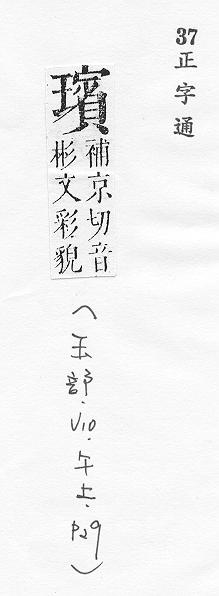 37
正字通
璸
補京切音
彬文彩貌
(玉部.V10.午上.P29)